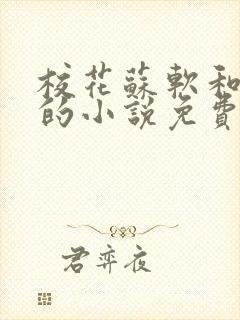 校花蘇軟和
的小說免費
君弈夜